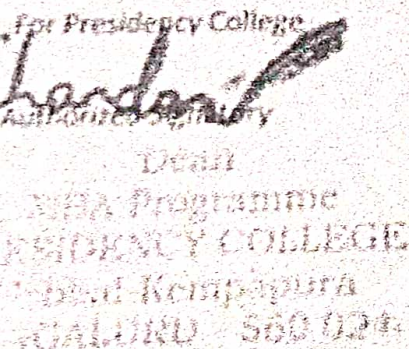 For Presidency College
Authorized Signatory
Dean
MBA Programme
ESIDENCY COLLEGE
Kempapura
GALURU 560 024